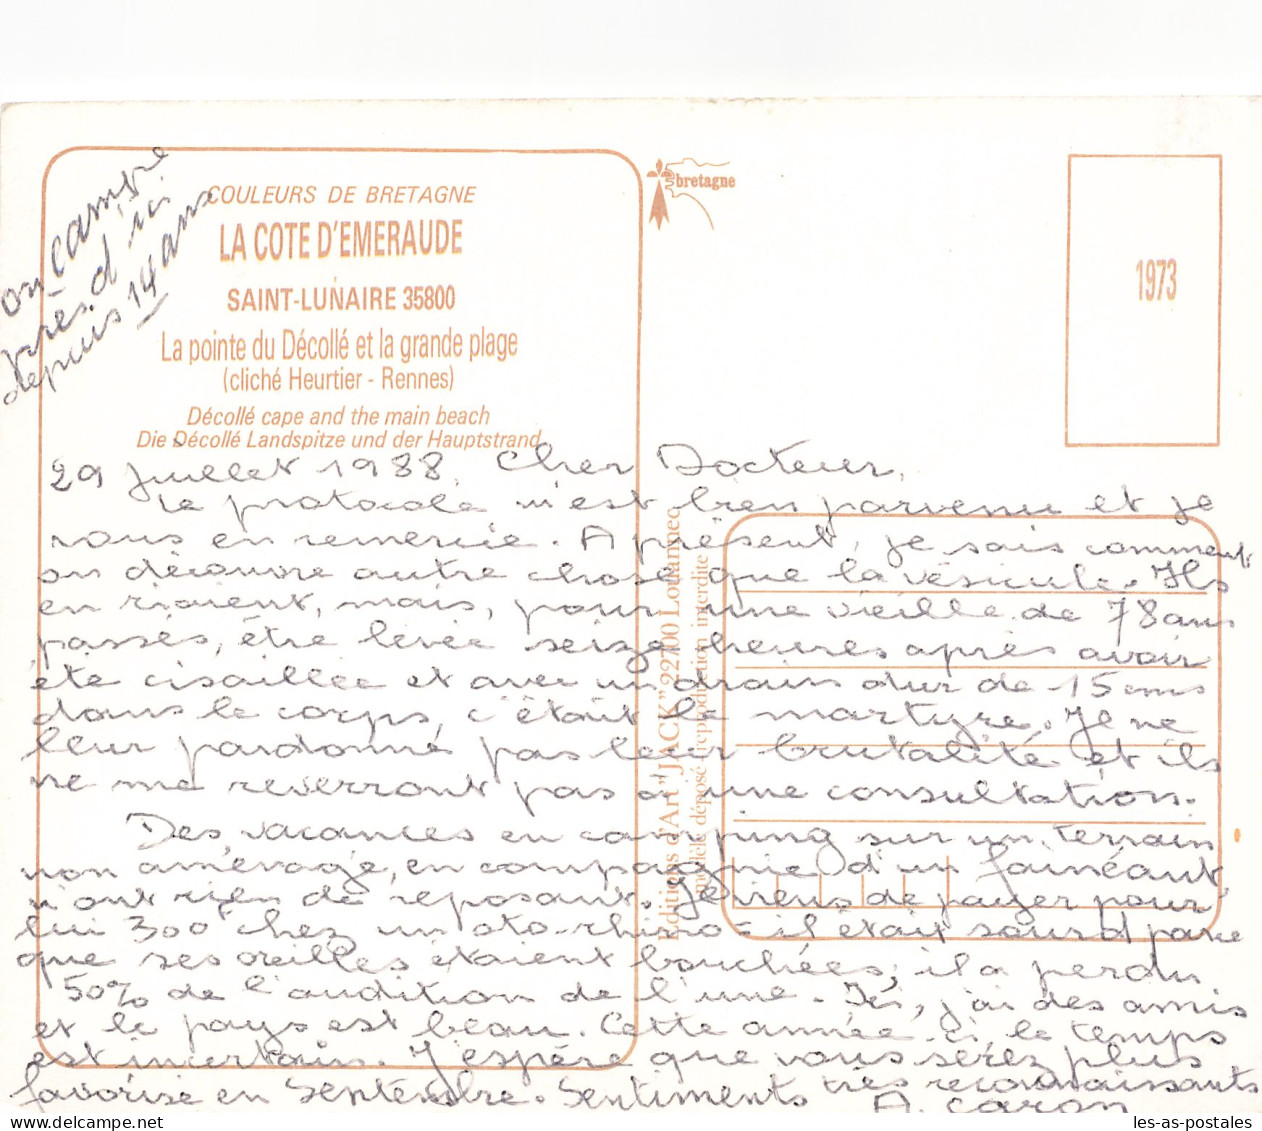 on campe
près d'ici
depuis 14 ans
COULEURS DE BRETAGNE
LA COTE D'EMERAUDE
SAINT-LUNAIRE 35800
La pointe du Décollé et la grande plage
(cliché Heurtier - Rennes)
Décollé cape and the main beach
Die Décollé Landspitze und der Hauptstrand
bretagne
1973
Editions d'Art "JACK" 22700 Louannec
modèle déposé (reproduction interdite)
29 Juillet 1988. Cher Docteur,
Le protocole m'est bien parvenu et je
vous en remercie. A présent, je sais comment
on découvre autre chose que la vésicule. Ils
en rient, mais, pour une vieille de 78 ans
passés, être levée seize heures après avoir
été cisaillée et avec un drain dur de 15 cms
dans le corps, c'était le martyre. Je ne
leur pardonne pas leur brutalité et ils
ne me reverront pas à une consultation.
Des vacances en camping sur un terrain
non aménagé, en compagnie d'un fainéant,
n'ont rien de reposant. Je viens de payer pour
lui 300F chez un oto-rhino - il était sourd parce
que ses oreilles étaient bouchées, il a perdu
50% de l'audition de l'une. Ici, j'ai des amis
et le pays est beau. Cette année ci le temps
est incertain. J'espère que vous serez plus
favorisé en Septembre. Sentiments très reconnaissants
A. Caron
les-as-postales